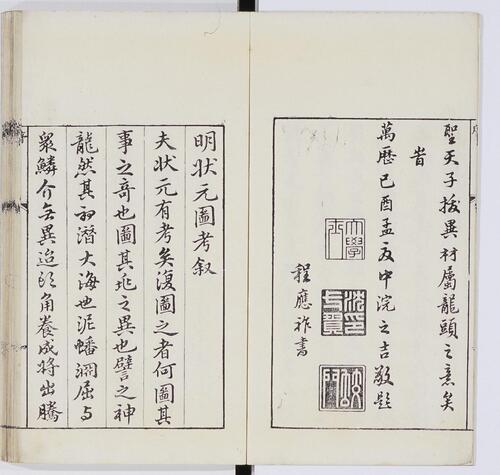 聖天子拔異材屬龍頭之意矣
旹
萬歷己酉孟夏中浣之吉敬題
程應祚書
明狀元圖考叙
夫狀元有考矣復圖之者何圖其
事之竒也圖其兆之異也譬之神
龍然其初潛大海也泥蟠淵屈与
衆鱗介無異迨頭角養成將出騰